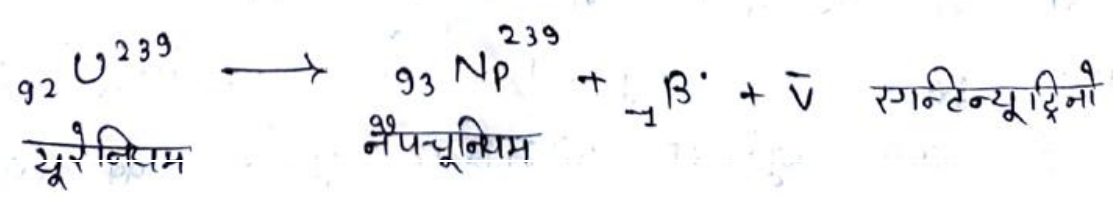 ₉₂U²³⁹ ⟶ ₉₃Np²³⁹ + ₋₁β° + ν̄ एन्टिन्यूट्रिनो
यूरेनियम नैपच्यूनियम